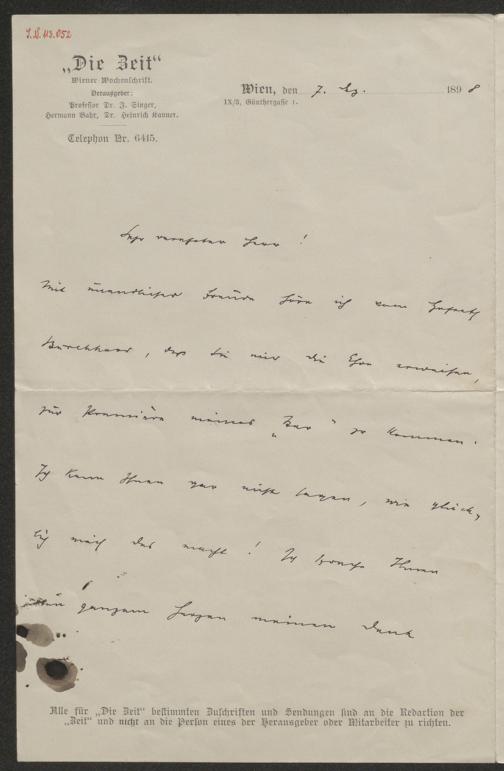 „Die Zeit“
Wiener Wochenschrift.
Herausgeber:
Professor Dr. I. Singer,
Hermann Bahr, Dr. Heinrich Kanner.
Telephon Nr. 6415.
Wien, den 7. 1898
IX/3, Günthergasse 1.
Sehr verehrter Herr!
Mit unendlicher Freude höre ich vom Hofrath
Burckhard, daß Sie mir die Ehre erweisen,
zur Première meines „Star“ zu kommen.
Ich kann Ihnen gar nicht sagen, wie glück-
lich mich das macht! Ich Ihnen
ganzem Herzen meinen Dank
Alle für „Die Zeit“ bestimmten Zuschriften und Sendungen sind an die Redaction der
„Zeit“ und nicht an die Person eines der Herausgeber oder Mitarbeiter zu richten.